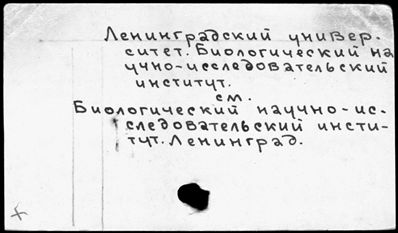 Ленинградский универ-
ситет. Биологический на
учно-исследовательский
институт.
см.
Биологический научно-ис-
следовательский инсти-
тут. Ленинград.